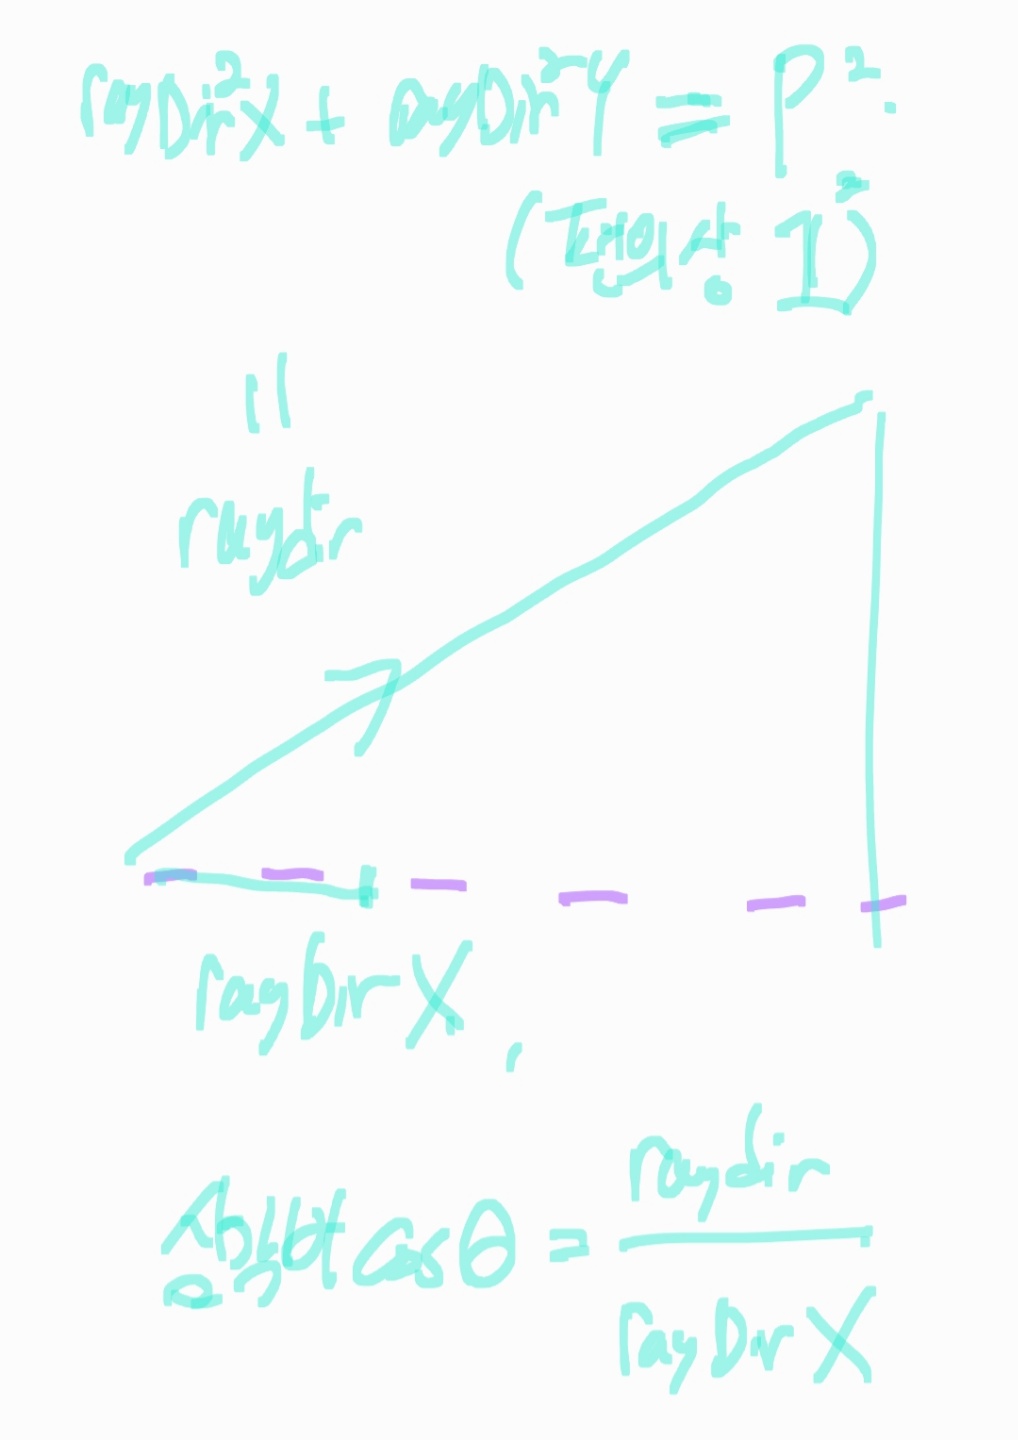 rayDir²X + rayDir²Y = P².
1²)
"
raydir
rayDirX,
cosθ = raydir
rayDirX